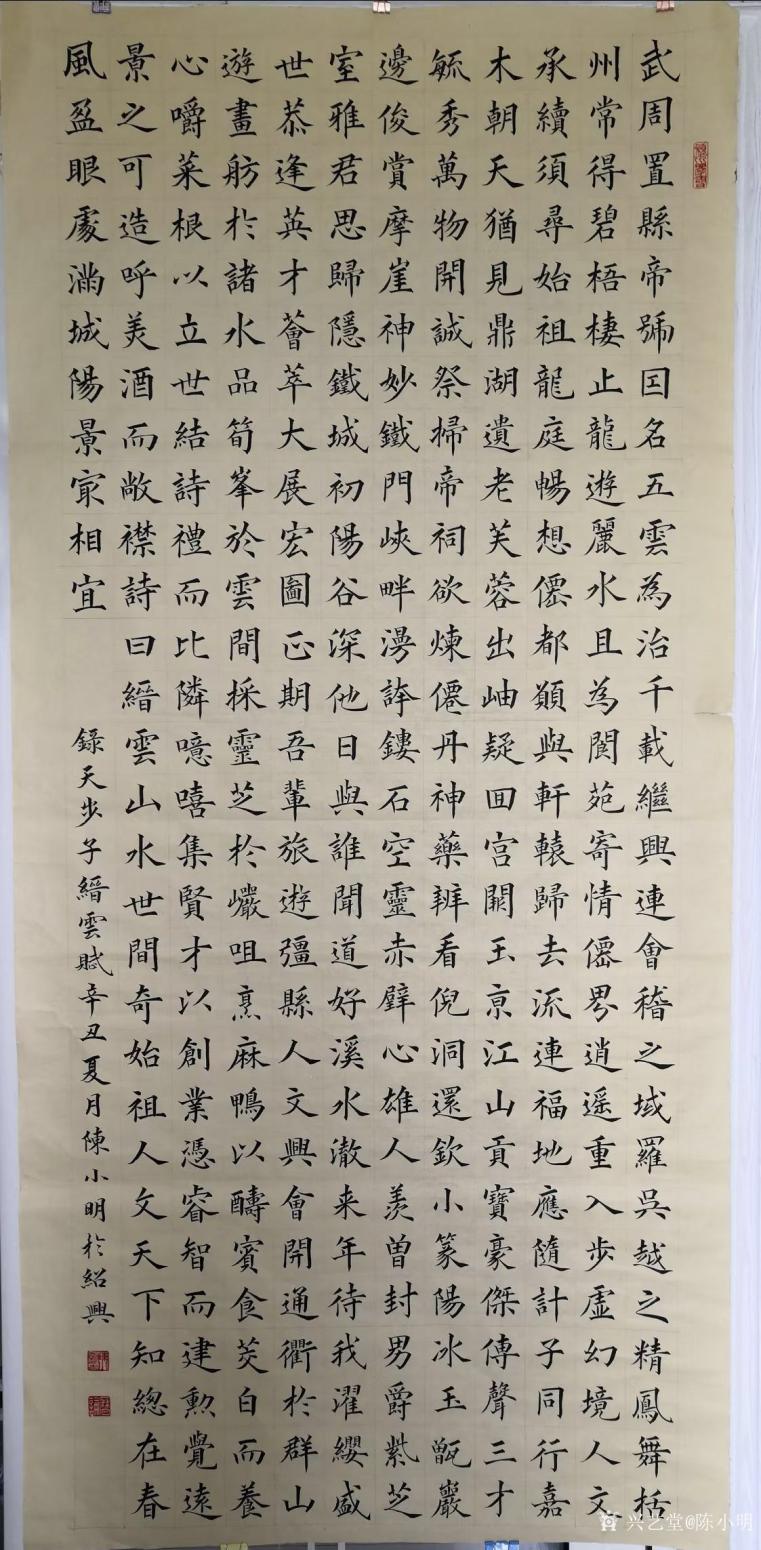 武周置縣帝號因名五雲為治千載繼興連會稽之域羅吳越之精鳳舞栝
州常得碧梧棲止龍遊麗水且為閬苑寄情僊界逍遥重入步虛幻境人文
承續須尋始祖龍庭暢想僊都願與軒轅歸去流連福地應隨計子同行嘉
木朝天猶見鼎湖遺老芙蓉出岫疑回宮闕玉京江山貢寶豪傑傳聲三才
毓秀萬物開誠祭掃帝祠欲煉僊丹神藥辨看倪洞還欽小篆陽冰玉甑巖
邊俊賞摩崖神妙鐵門峽畔漫誇鏤石空靈赤壁心雄人羨曾封男爵紫芝
室雅君思歸隱鐵城初陽谷深他日與誰聞道好溪水澈来年待我濯纓盛
世恭逢英才薈萃大展宏圖正期吾輩旅遊彊縣人文興會開通衢於群山
遊畫舫於諸水品筍峯於雲間採靈芝於巘咀烹麻鴨以醻賓食茭白而養
心嚼菜根以立世結詩禮而比隣噫嘻集賢才以創業憑睿智而建勲覺遠
景之可造呼美酒而敞襟詩曰縉雲山水世間奇始祖人文天下知總在春
風盈眼處滿城陽景㝡相宜
錄天步子縉雲賦辛丑夏月陳小明於紹興
兴艺堂@陈小明